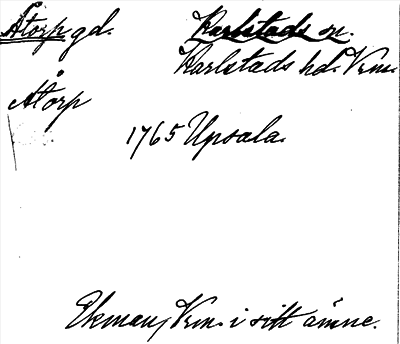 Åtorp gd. Karlstads sn.
Karlstads hd. Vrm.
Åtorp
1765 Upsala.
Ekman, Vrm. i sitt ämne.